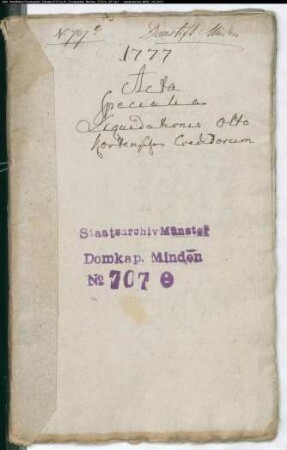 No 707 e
Domstift Minden
1777
Acta
Specialia
Liquidationis Otto
Creditorum
Staatsarchiv Münster
Domkap. Minden
No 707 e